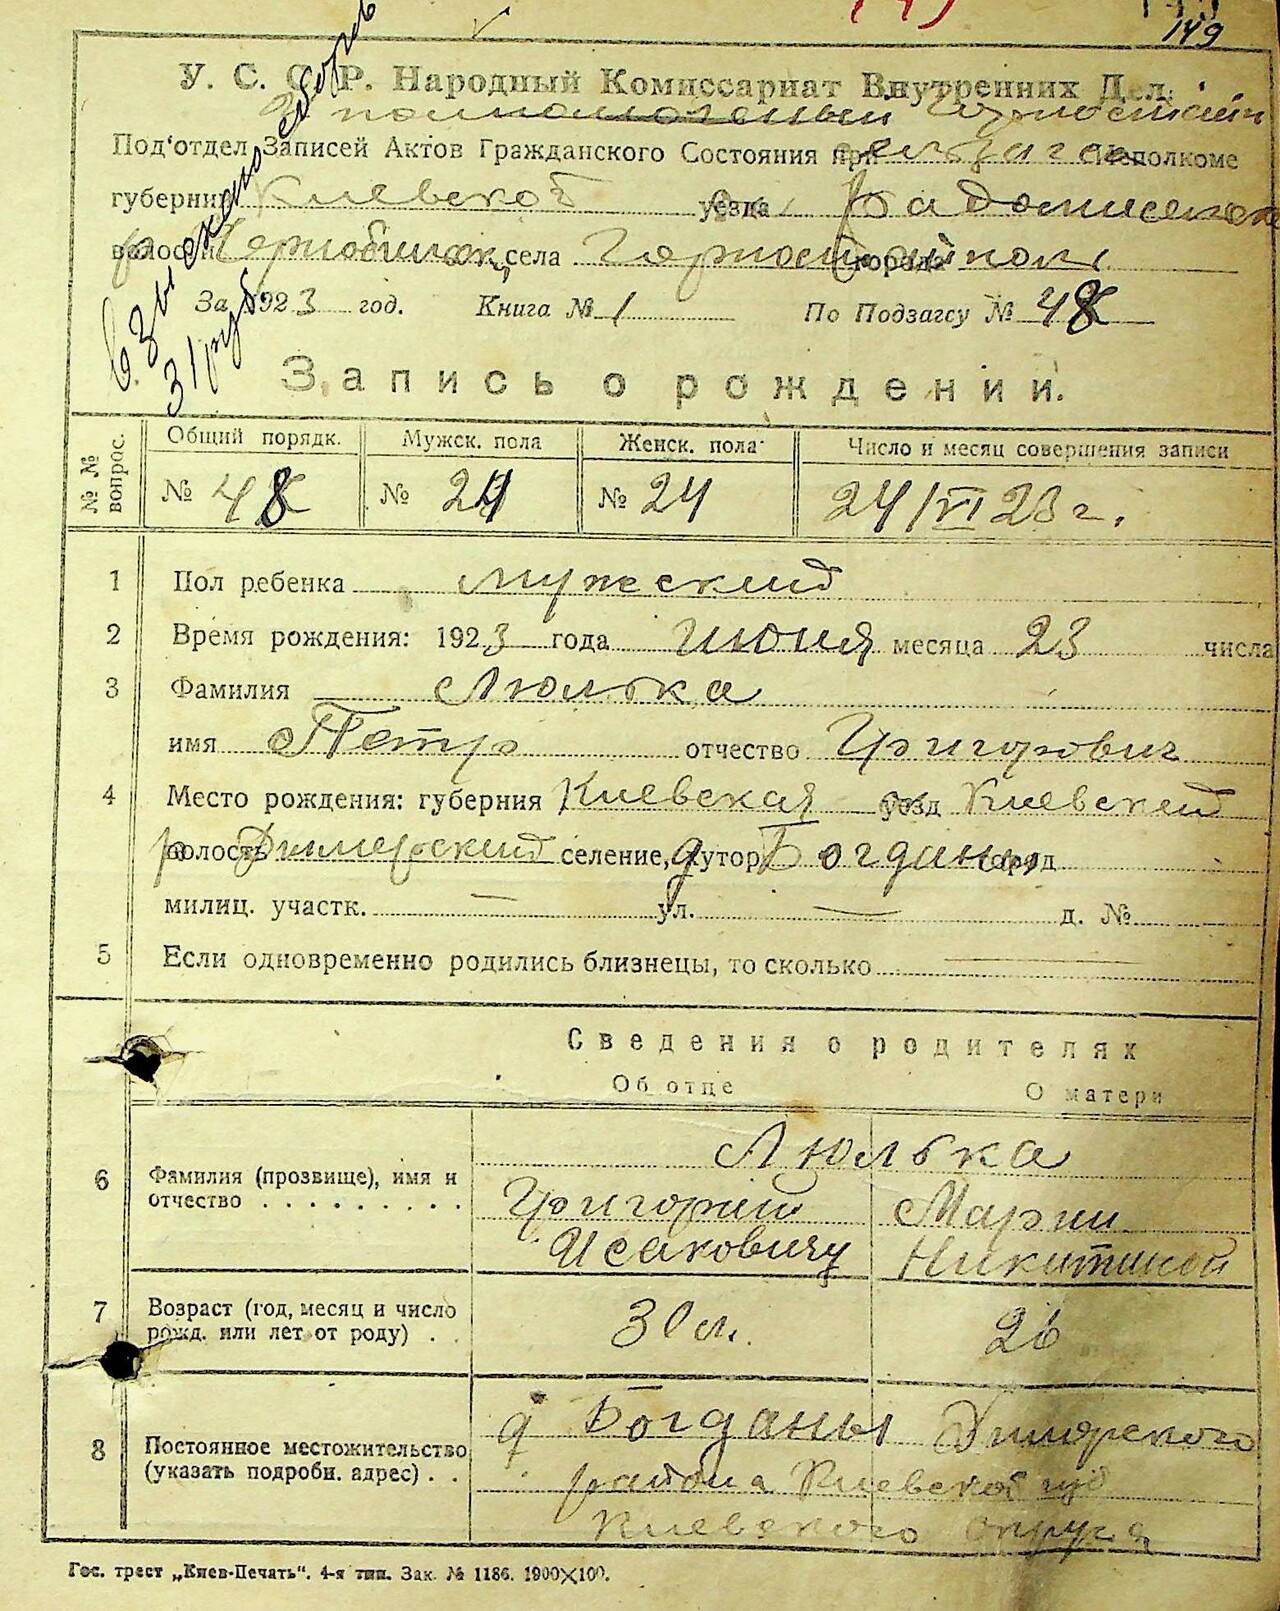 149
У. С. С. Р. Народный Комиссариат Внутренних Дел.
Под'отдел Записей Актов Гражданского Состояния при Исполкоме
губернии Киевской уезда
волости села Горностайполь города
За 1923 год. Книга № 1 По Подзагсу № 48
Запись о рождении.
№ № вопрос.
Общий порядк. Мужск. пола Женск. пола Число и месяц совершения записи
№ 48 № 24 № 24 24/VI 23 г.
1 Пол ребенка мужский
2 Время рождения: 1923 года июня месяца 23 числа
3 Фамилия Люлька
имя Петр отчество Григорович
4 Место рождения: губерния Киевская уезд Киевский
волость Димерский селение, хутор Богданы город
милиц. участк. — ул. — д. №
5 Если одновременно родились близнецы, то сколько —
Сведения о родителях
Об отце О матери
Люлька
6 Фамилия (прозвище), имя и отчество . . . . . . . . . Григорий Марии
Исаковичу Никитиной
7 Возраст (год, месяц и число рожд. или лет от роду) . . 30 л. 26
д Богданы Димерского
8 Постоянное местожительство (указать подробн. адрес) . . района Киевской губ
Киевского округа
Гос. трест „Киев-Печать“. 4-я тип. Зак. № 1186. 1900×100.